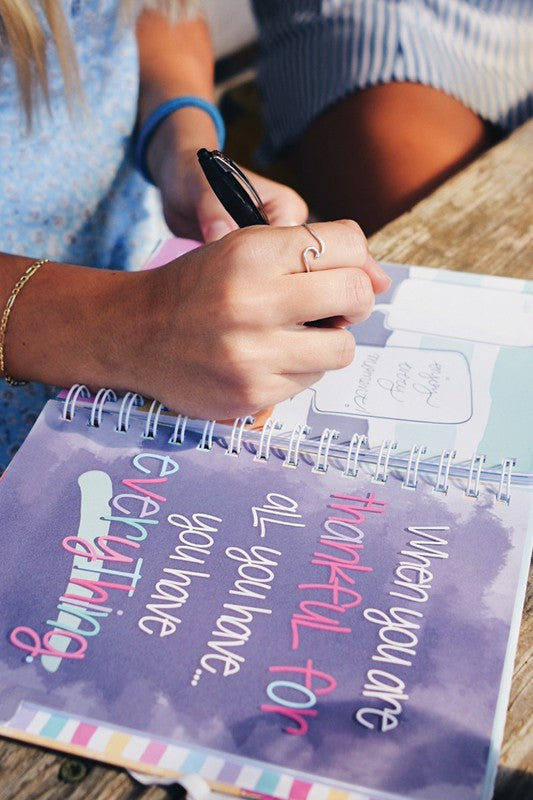 enjoy
every
moment!
When you are
thankful for
all you have...
you have
everything.